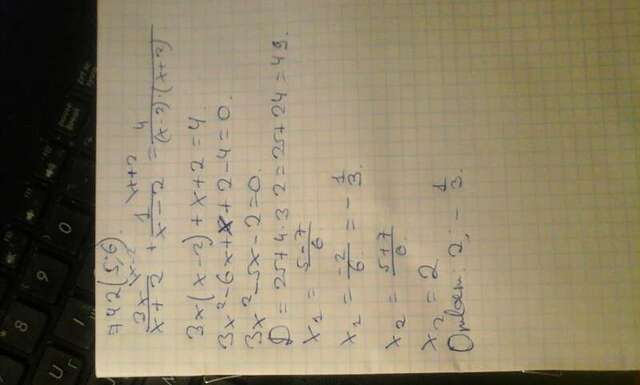 742(5;6).
3x/(x+2) \x-2 + 1/(x-2) \x+2 = 4/((x-2)·(x+2))
3x(x-2)+x+2=4.
3x²-6x+x+2-4=0.
3x²-5x-2=0.
D=25+4·3·2=25+24=49.
x₁=(5-7)/6
x₁=-2/6=-1/3.
x₂=(5+7)/6
x₂=2
Ответ: 2; -1/3.